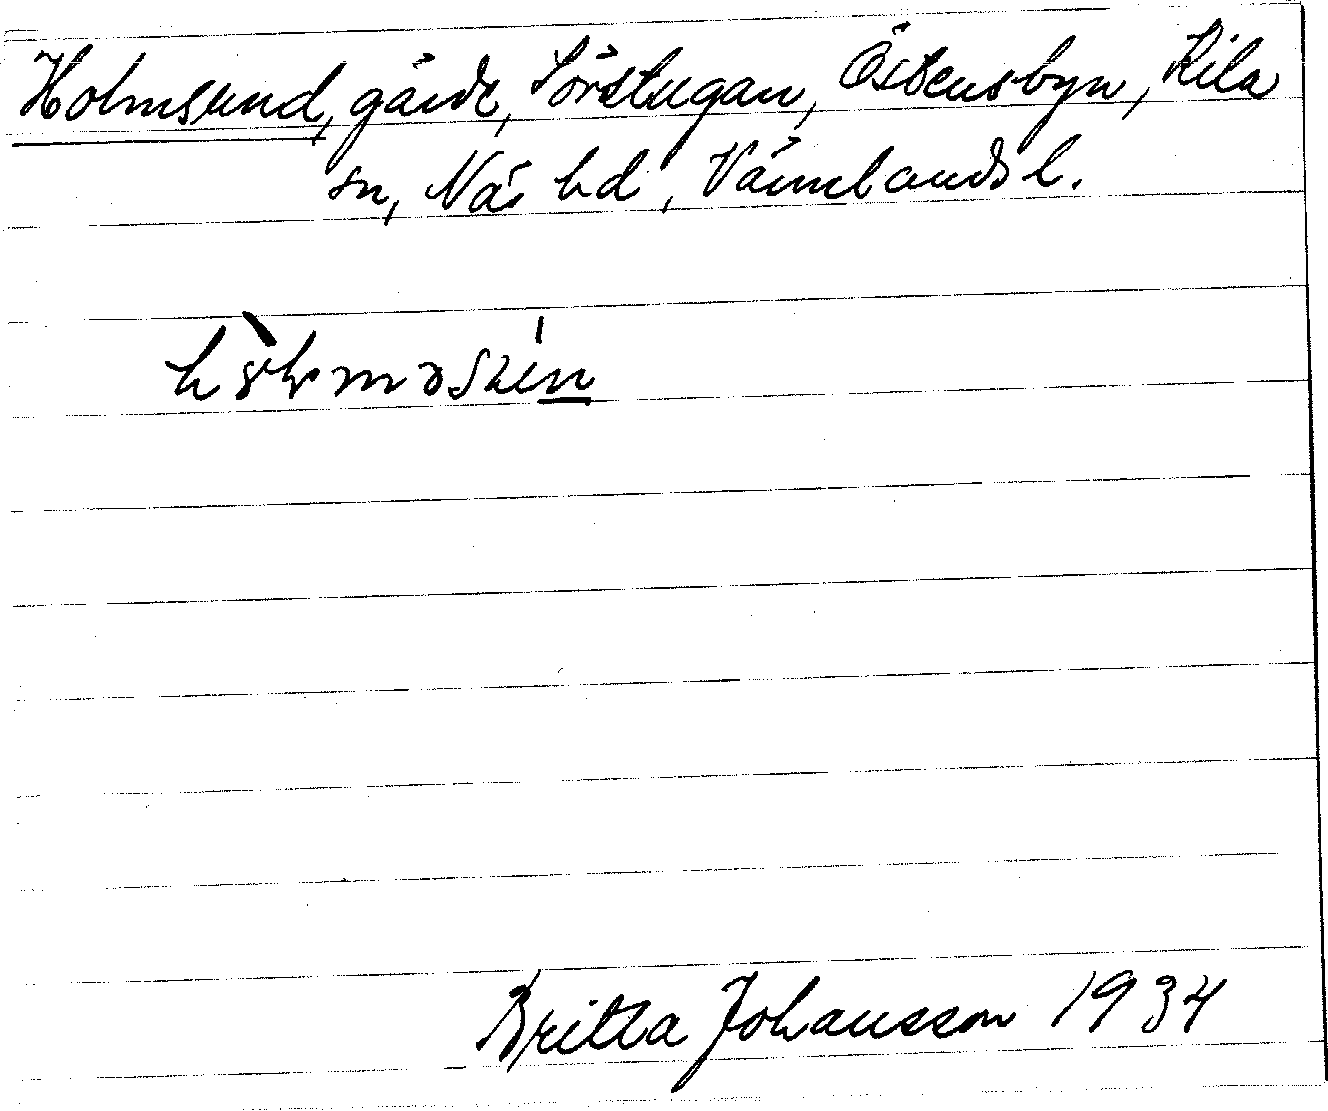 Holmsund, gärde, Sörstugan, Östensbyn, Kila
sn, Näs hd, Värmlands l.
Britta Johansson 1934